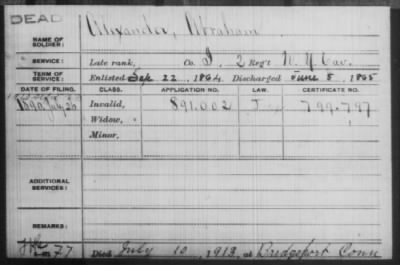 DEAD
NAME OF SOLDIER: Alexander, Abraham
SERVICE: Late rank, Co. I, 2 Reg't N. Y. Cav.
TERM OF SERVICE: Enlisted Sep. 22, 1864. Discharged June 5, 1865
DATE OF FILING. CLASS. APPLICATION NO. LAW. CERTIFICATE NO.
1890 July 26 Invalid, 891.002 J 799.797
Widow,
Minor,
ADDITIONAL SERVICES:
REMARKS:
77 Died July 10, 1913, at Bridgeport Conn